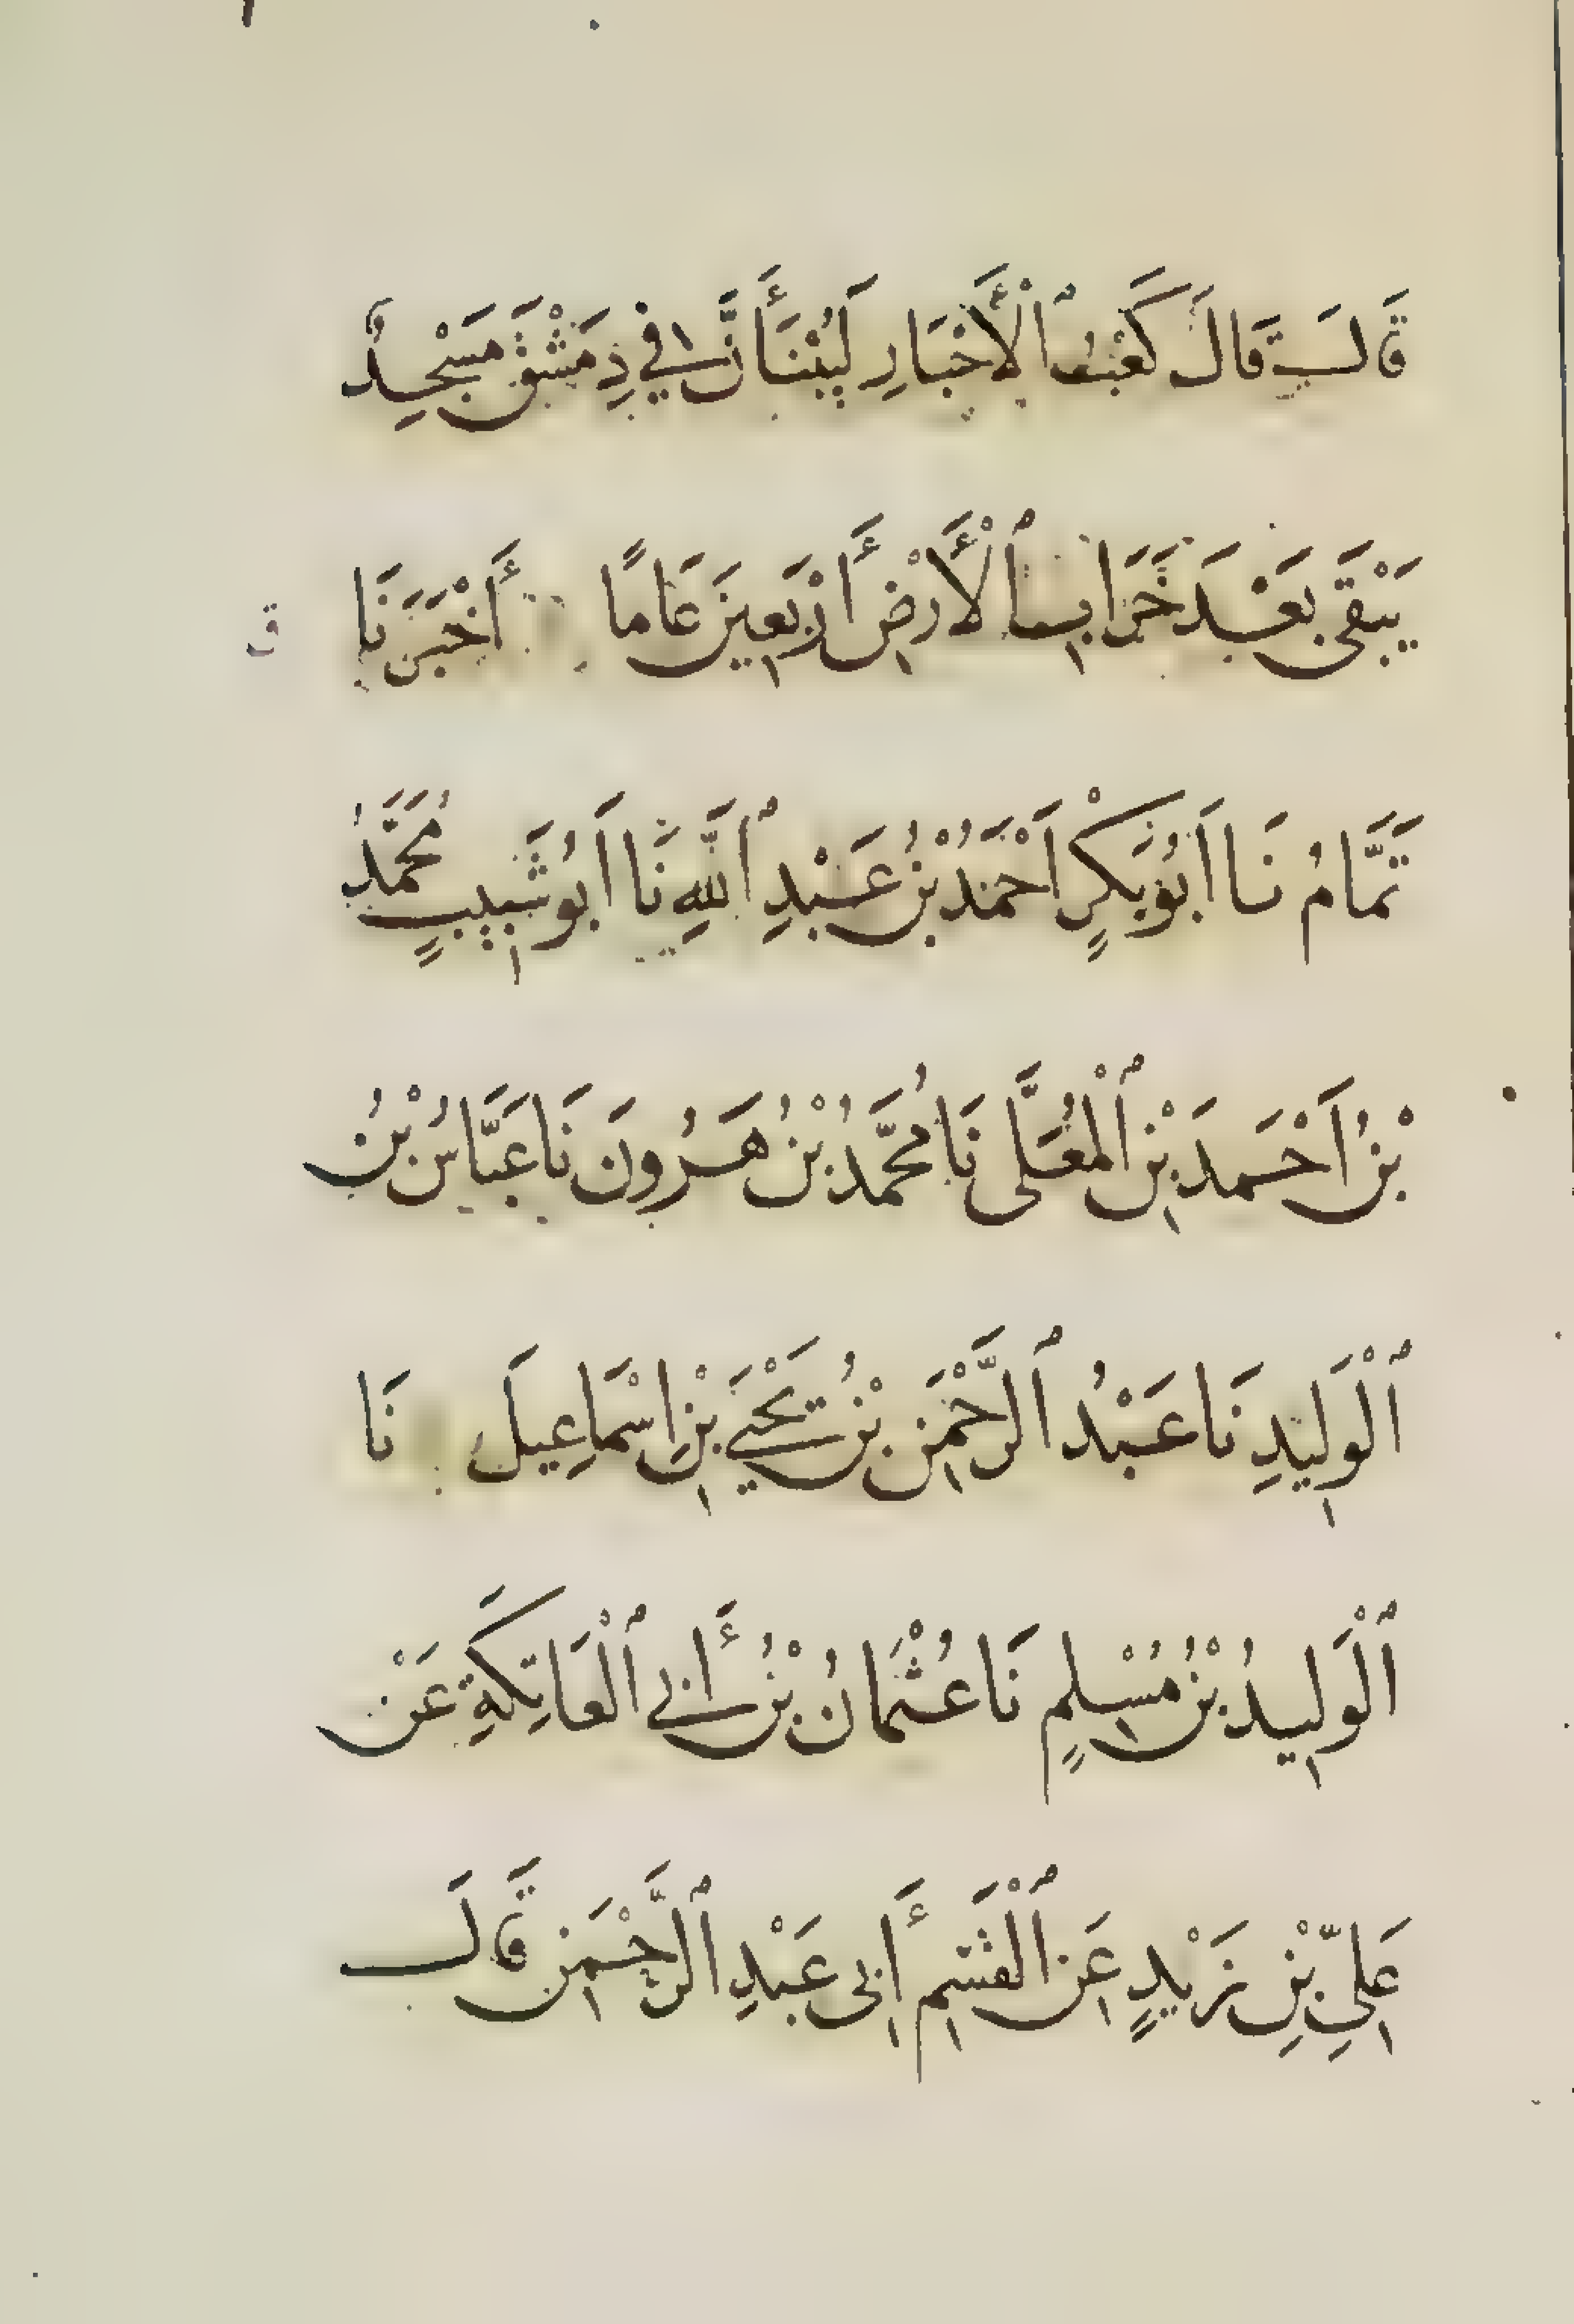 قَالَ قَالَ كَعْبُ ٱلْأَحْبَارِ لَيُبْنَأَنَّ فِي دِمَشْقَ مَسْجِدٌ
يَبْقَى بَعْدَ خَرَابِ ٱلْأَرْضِ أَرْبَعِينَ عَامًا أَخْبَرَنَا
تَمَّامُ نَا اَبُو بَكْرٍ اَحْمَدُ بْنُ عَبْدِ ٱللَّهِ نَا اَبُو شَبِيبٍ مُحَمَّدُ
بْنُ اَحْمَدَ بْنِ ٱلْمُعَلَّى نَا مُحَمَّدُ بْنُ هَرُونَ نَا عَبَّاسُ بْنُ
ٱلْوَلِيدِ نَا عَبْدُ ٱلرَّحْمَنِ بْنُ يَحْيَى بْنِ اسْمَاعِيلَ نَا
ٱلْوَلِيدُ بْنُ مُسْلِمٍ نَا عُثْمَانُ بْنُ أَبِي ٱلْعَاتِكَةِ عَنْ
عَلِيِّ بْنِ زَيْدٍ عَنِ ٱلْقَسِمِ أَبِي عَبْدِ ٱلرَّحْمَنِ قَالَ